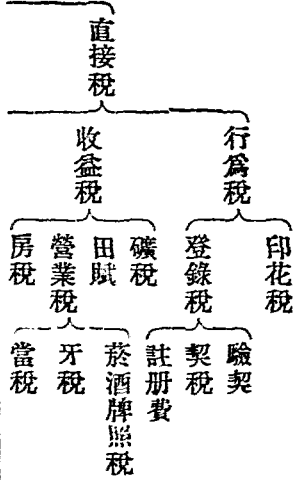 直接稅
行爲稅
收益稅
印花稅
登錄稅
礦稅
田賦
營業稅
房稅
驗契
契稅
註册費
菸酒牌照稅
牙稅
當稅